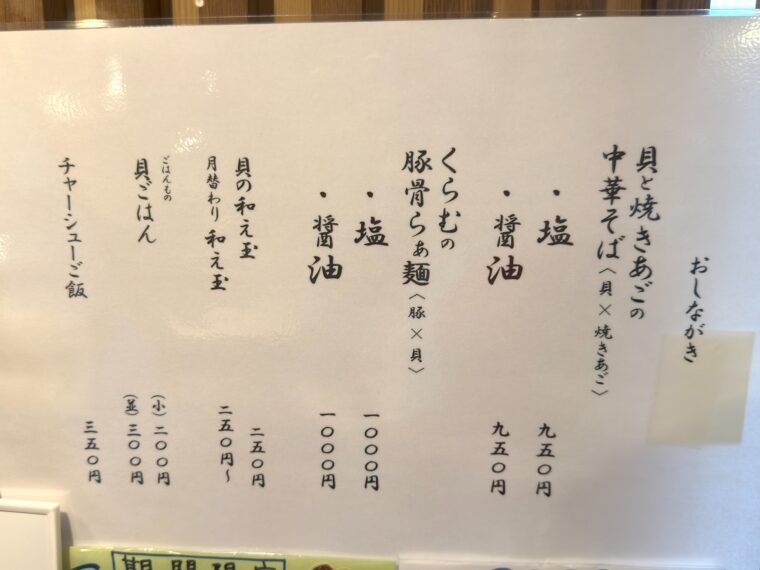 おしながき
貝と焼きあごの
中華そば〈貝×焼きあご〉
・塩 九五〇円
・醤油 九五〇円
くらむの
豚骨らぁ麺〈豚×貝〉
・塩 一〇〇〇円
・醤油 一〇〇〇円
貝の和え玉 二五〇円
月替わり 和え玉 二五〇円〜
ごはんもの
貝ごはん
(小) 二〇〇円
(並) 三〇〇円
チャーシューご飯 三五〇円
期間限定